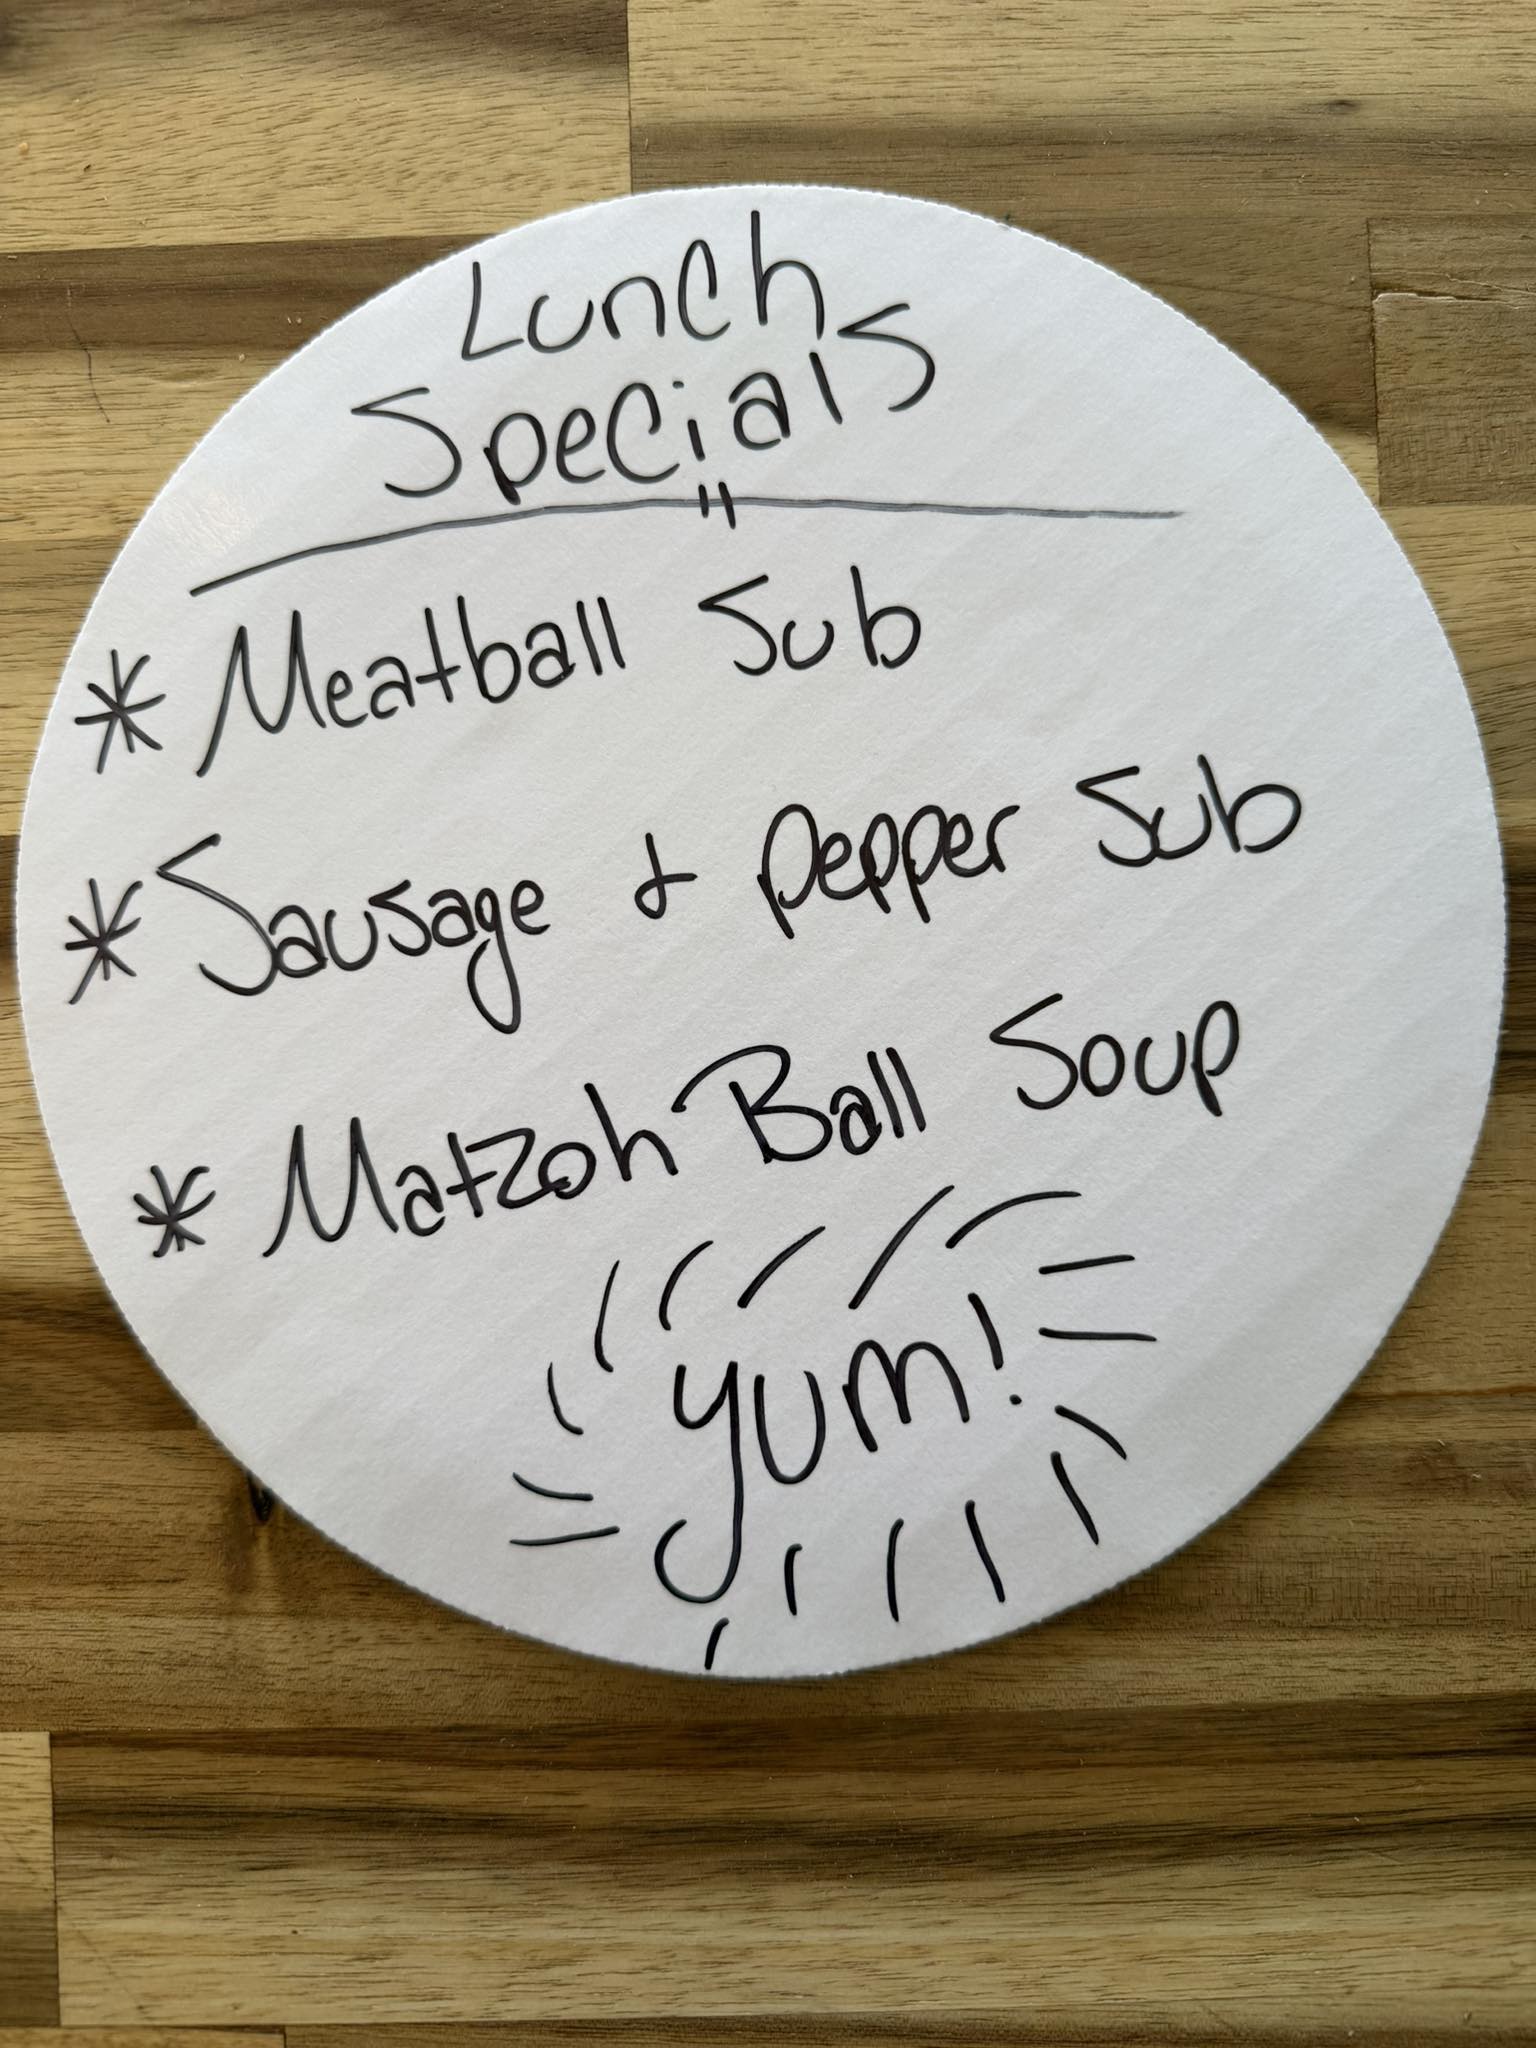 Lunch
Specials
* Meatball Sub
* Sausage & Pepper Sub
* Matzoh Ball Soup
Yum!